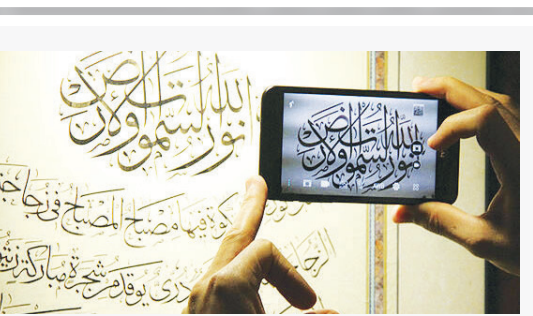 الله نور السموات والأرض
الله نور السموات والأرض
فيها مصباح المصباح في زجاجة
دري يوقد من شجرة مباركة